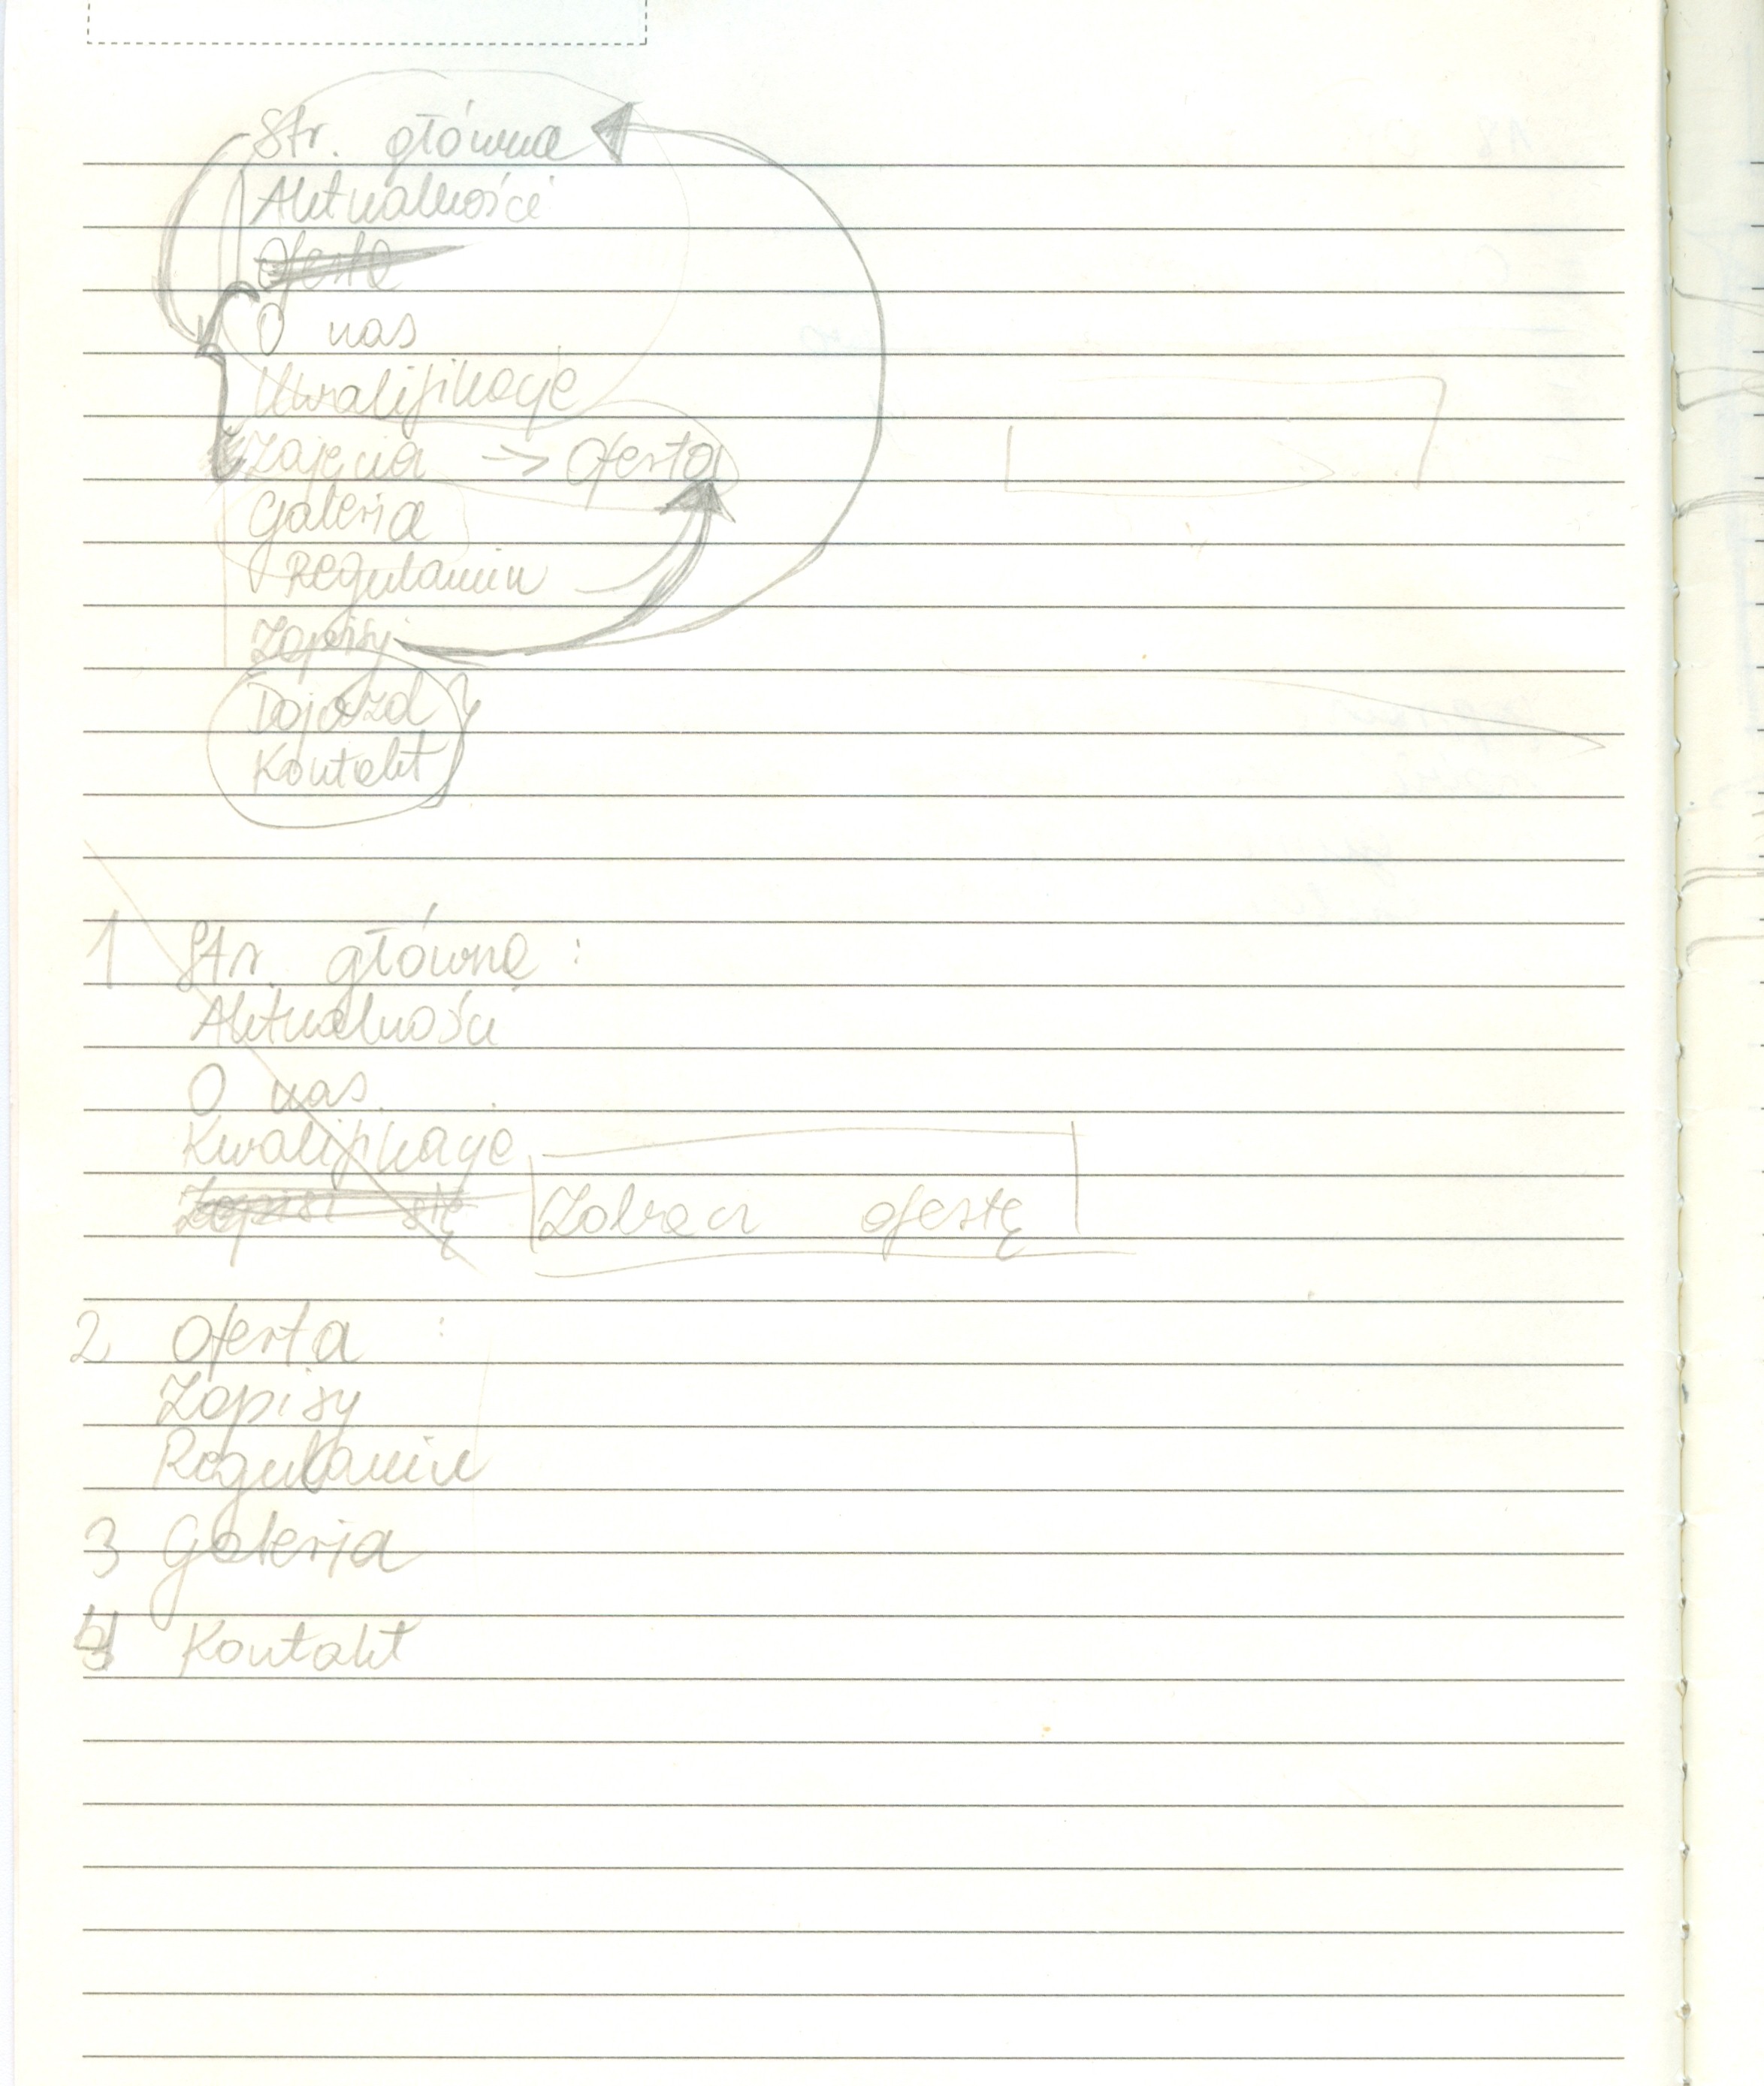 Str. główna
Aktualności
Oferta
O nas
Kwalifikacje
Zajęcia -> Oferta
Galeria
Regulamin
Zapisy
Dojazd
Kontakt
1 Str. główna :
Aktualności
O nas
Kwalifikacje
Zapisz się Zobacz ofertę
2 Oferta :
Zapisy
Regulamin
3 Galeria
4 Kontakt